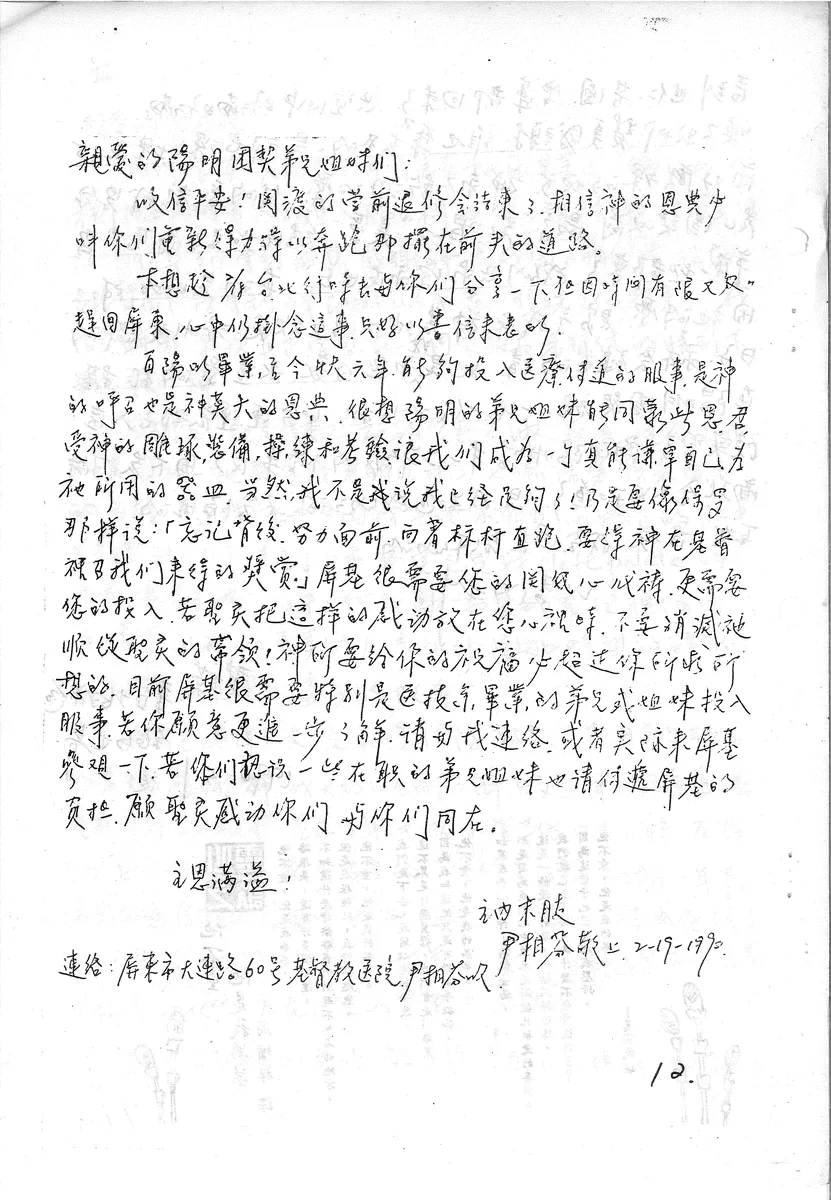 親愛的陽明团契弟兄姐妹们：
收信平安！関渡的當前退修会结束了，相信神的恩典必
叫你们重新得力得以奔跑那擺在前头的道路。
本想趁 台北行時去与你们分享一下但因時间有限又
趕回屏東，心中仍掛念這事，只好以書信来表
自陽明畢業，至今 六年，能夠投入医療传道的服事，是神
的呼召也是神莫大的恩典，很想陽明的弟兄姐妹能同蒙此恩，
受神的雕琢，裝備，操練和考驗，讓我们成為一个真能謙卑自己為
祂所用的器皿，当然，我不是我说我已经足夠了！乃是要像保罗
那样说：「忘记背後，努力面前，向著标杆直跑，要得神在基督
裡召我们来得的奬赏。」屏基很需要您的関 心代祷，更需要
您的投入，若聖灵把這样的感动放在您心裡時，不要消滅祂
顺從聖灵的帶领！神所要给你的祝福必超过你所求所
想的，目前屏基很需要特别是医技系，畢業，的弟兄或姐妹投入
服事，若你願意更進一步了解，请与我連络，或者实际来屏基
參观一下，若你们認识一些在职的弟兄姐妹也请传遞屏基的
负担，願聖灵感动你们 与你们同在。
主恩满溢！
主内末肢
尹相芬敬上 2-19-1990.
連络：屏東市大連路60号基督教医院，尹相芬收
12.